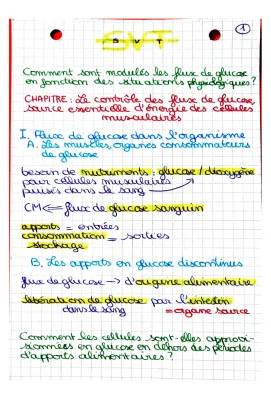 ①
SVT
Comment sont modulés les flux de glucose
en fonction des situations physiologiques ?
CHAPITRE : Le contrôle des flux de glucose,
source essentielle d'énergie des cellules
musculaires
I. Flux de glucose dans l'organisme
A. Les muscles, organes consommateurs
de glucose
besoin de nutriments : glucose / dioxygène
pour cellules musculaires
puisés dans le sang
CM ⇐ flux de glucose sanguin
apports = entrées
consommation = sorties
stockage
B. Les apports en glucose discontinus
flux de glucose → d'origine alimentaire
libération de glucose par l'intestin
dans le sang = organe source
Comment les cellules sont-elles approvi-
sionnées en glucose en dehors des périodes
d'apports alimentaires ?